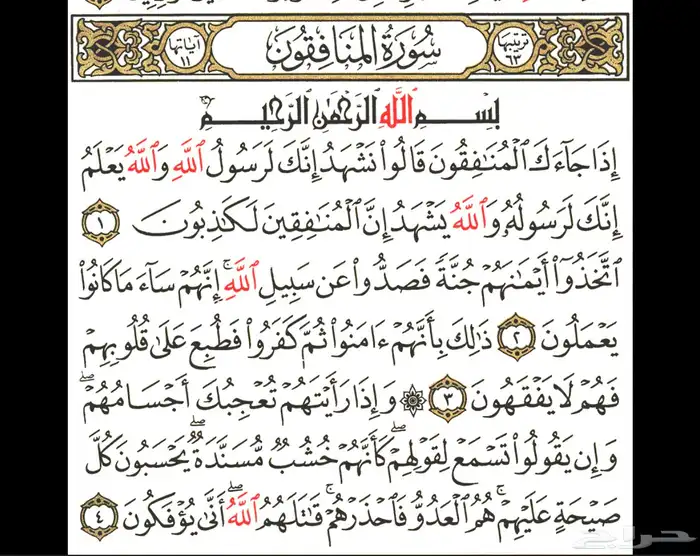 ترتيبها ٦٣
سُورَةُ المُنَافِقُونَ
آياتها ١١
بِسْمِ ٱللَّهِ ٱلرَّحْمَٰنِ ٱلرَّحِيمِ
إِذَا جَآءَكَ ٱلْمُنَٰفِقُونَ قَالُوا۟ نَشْهَدُ إِنَّكَ لَرَسُولُ ٱللَّهِ وَٱللَّهُ يَعْلَمُ
إِنَّكَ لَرَسُولُهُۥ وَٱللَّهُ يَشْهَدُ إِنَّ ٱلْمُنَٰفِقِينَ لَكَٰذِبُونَ ١
ٱتَّخَذُوٓا۟ أَيْمَٰنَهُمْ جُنَّةً فَصَدُّوا۟ عَن سَبِيلِ ٱللَّهِۚ إِنَّهُمْ سَآءَ مَا كَانُوا۟
يَعْمَلُونَ ٢ ذَٰلِكَ بِأَنَّهُمْ ءَامَنُوا۟ ثُمَّ كَفَرُوا۟ فَطُبِعَ عَلَىٰ قُلُوبِهِمْ
فَهُمْ لَا يَفْقَهُونَ ٣ ۞ وَإِذَا رَأَيْتَهُمْ تُعْجِبُكَ أَجْسَامُهُمْۖ
وَإِن يَقُولُوا۟ تَسْمَعْ لِقَوْلِهِمْۖ كَأَنَّهُمْ خُشُبٌ مُّسَنَّدَةٌۖ يَحْسَبُونَ كُلَّ
صَيْحَةٍ عَلَيْهِمْۚ هُمُ ٱلْعَدُوُّ فَٱحْذَرْهُمْۚ قَٰتَلَهُمُ ٱللَّهُۖ أَنَّىٰ يُؤْفَكُونَ ٤
حراج